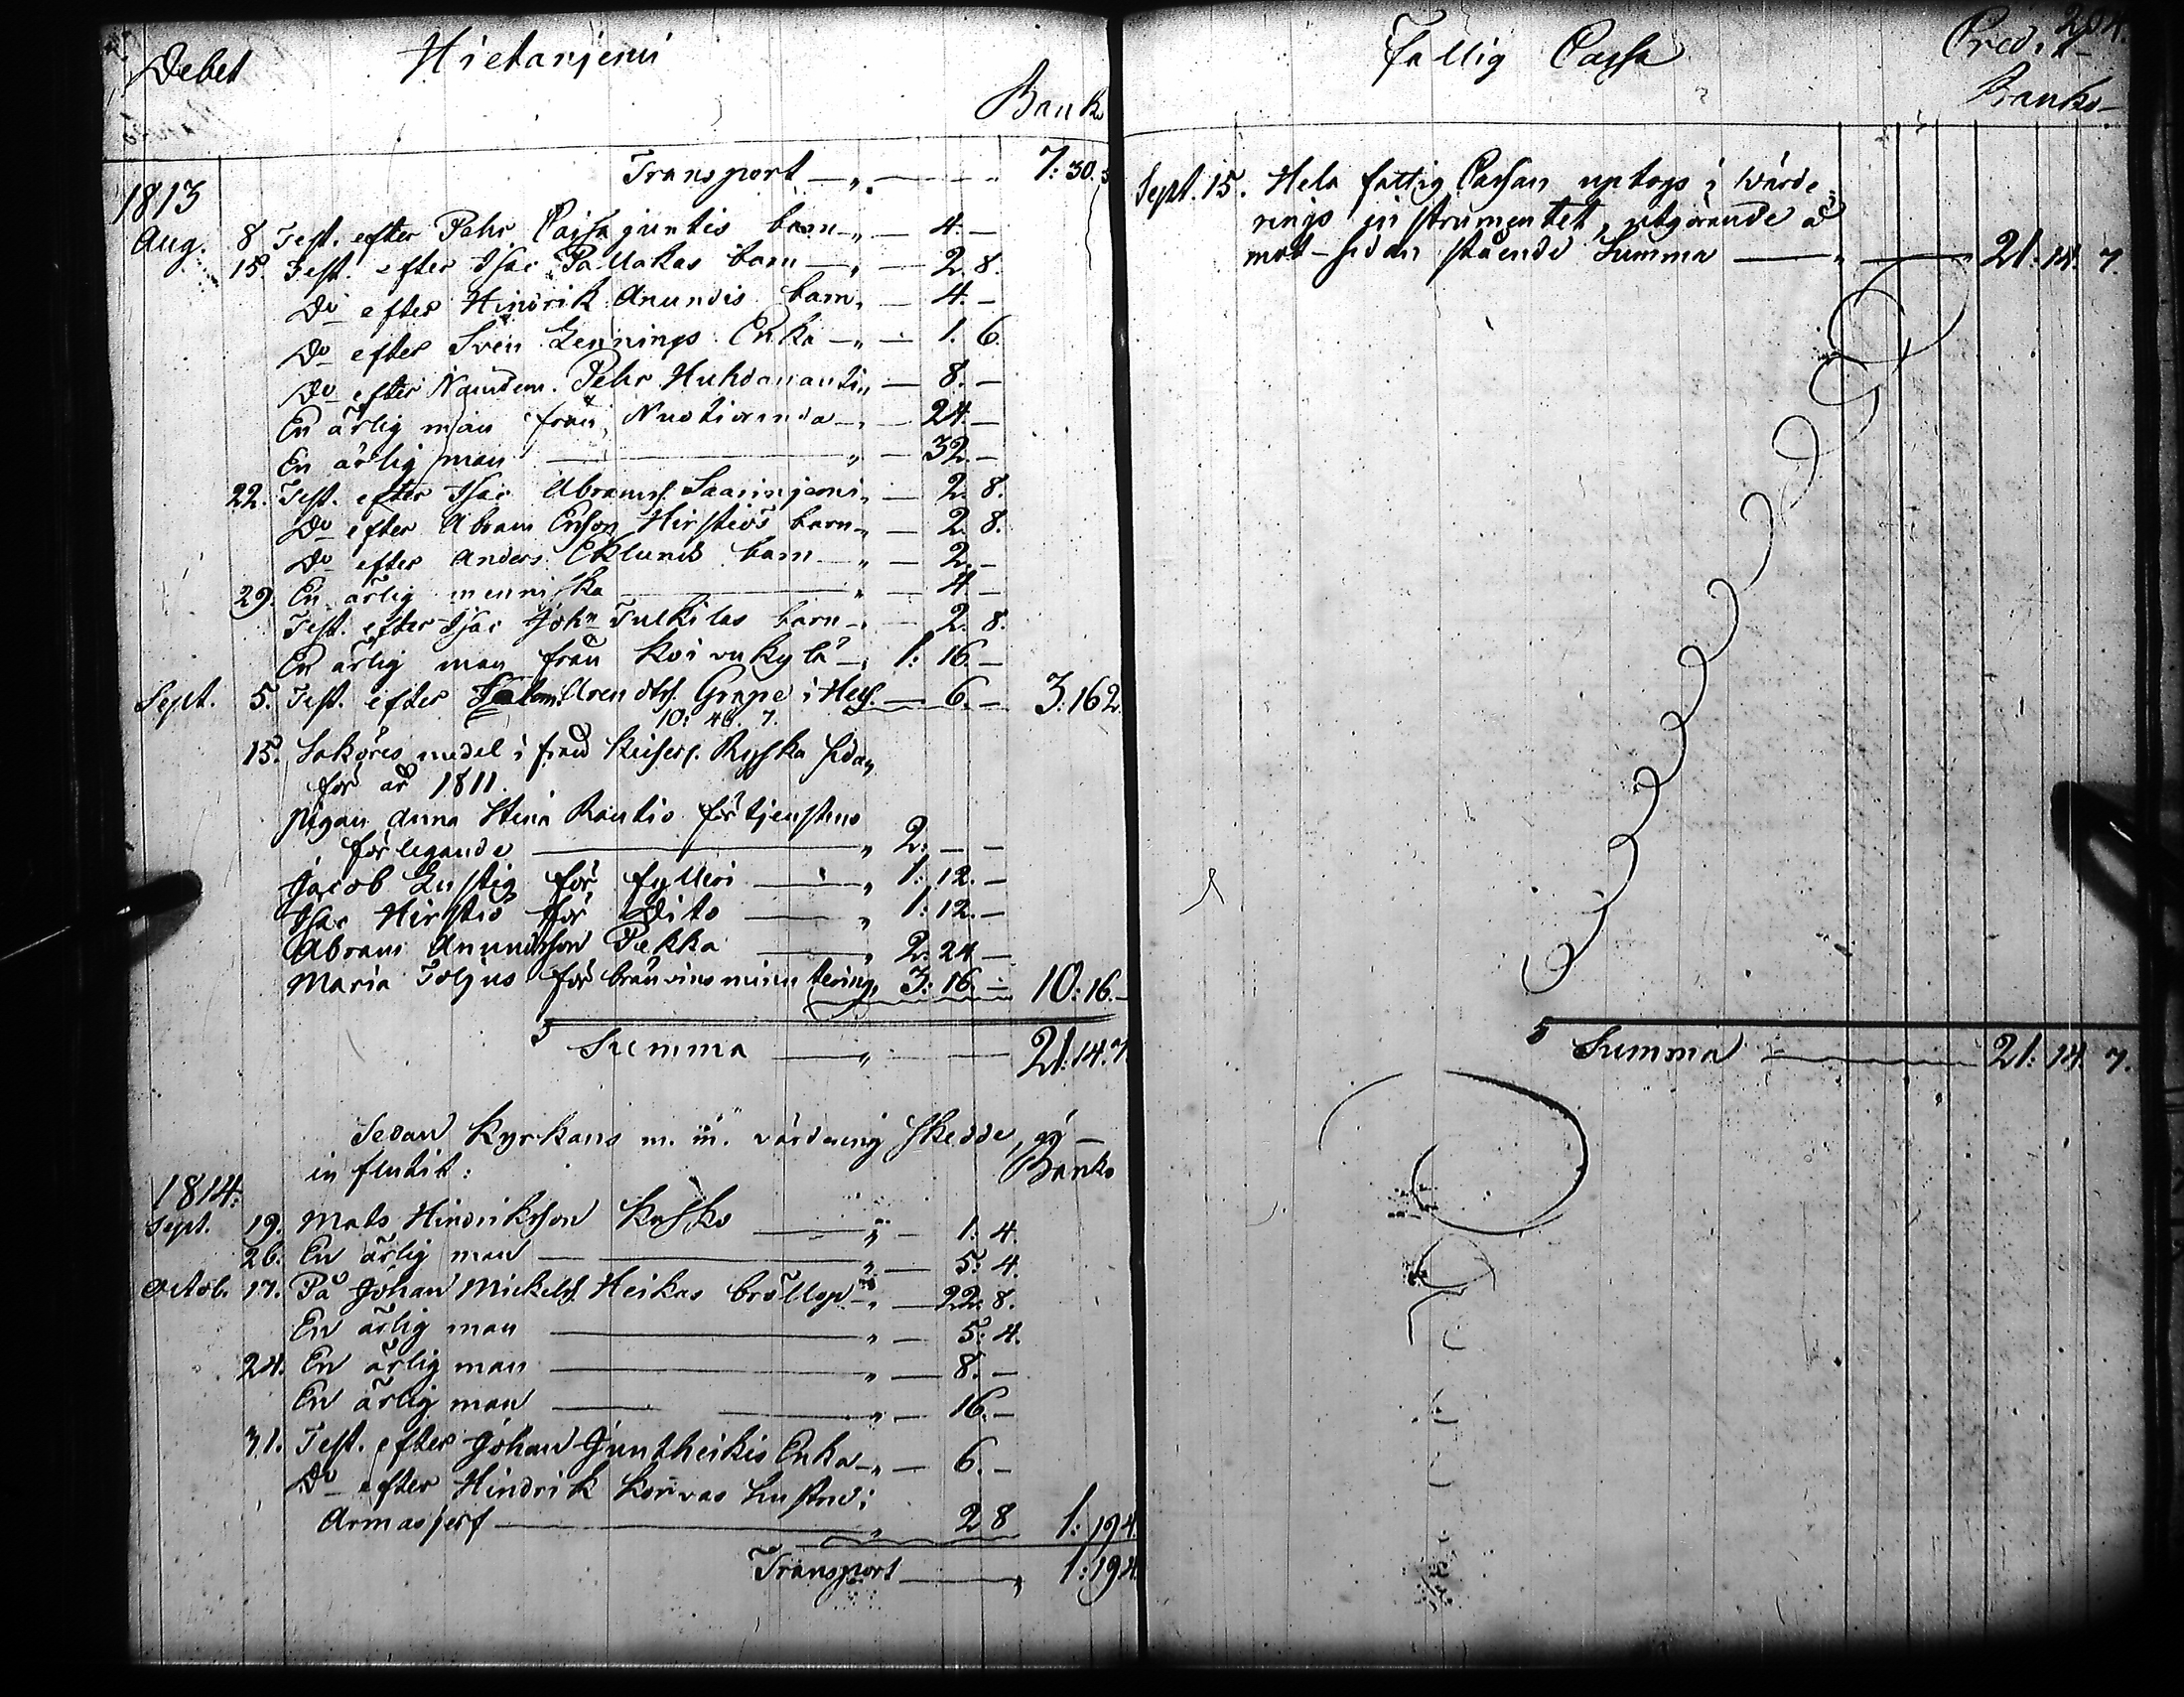 Debet Hietaniemi
Banko
Transport — „ — 7: 30. 5
1813
Aug. 8 Test. efter Pehr Pajsajuntis barn „ — 4. —
15. Test. efter Isac Pallakas barn — „ — 2. 8.
Do efter Hindrik Anundis barn „ — 4. —
Do efter Sven Lennings Enka — „ — 1. 6.
Do efter Nämdem. Pehr Huhdanantin — 8. —
En ärlig man från Nuotioranda — „ — 24. —
En ärlig man — „ — 32. —
22. Test. efter Isac Abramss. Saarinjemi „ — 2. 8.
Do efter Abram Ersson Hirstiös barn „ — 2. 8.
Do efter Anders Eklunds barn — „ — 2. —
29. En ärlig menniska — „ — 4 —
Test. efter Isac John Tulkilas barn — „ — 2. 8.
En ärlig man från Koivukylä — „ 1: 16. —
Sept. 5. Test. efter Arendts. Grape i Hes. — 6. — 3: 16 2.
10: 46. 7.
15. Saköres medel ifrån Keiserl. Ryska sidan
för år 1811.
Pigan Anna Stina Rautio för tjenstens
förlegande — „ 2: — —
Jacob Lustig för fylleri — „ 1: 12. —
Isac Hirstiö för Dito — „ 1: 12. —
Abram Anundsson Pekka — „ 2: 24 —
Maria Toljus för bränvins minutering „ 3: 16. — 10: 16. —
Summa — „ — 21: 14. 7.
Sedan Kyrkans m. m. värdering skedde,
influtit: Banko
1814.
Sept. 19. Mats Hindriksson Kysko — „ — 1: 4.
26. En ärlig man — „ — 5: 4.
Octob. 17. På Johan Mickelss. Heikas bröllop — „ — 22. 8.
En ärlig man — „ — 5: 4.
24. En ärlig man — „ — 8. —
En ärlig man — „ — 16. —
31. Test. efter Johan Juntheikis Enka — „ — 6. —
Do efter Hindrik Korvas hustru i
Armasjerf — „ 2 8 1: 19 4.
Transport — „ 1: 19 4.
Fattig Cassa Credit 204.
Banko
Sept. 15. Hela fattig Cassan uptogs i Wärde
rings instrumentet, utgörande å
mot-sidan stående Summa — „ — 21: 14. 7.
Summa — 21: 14. 7.